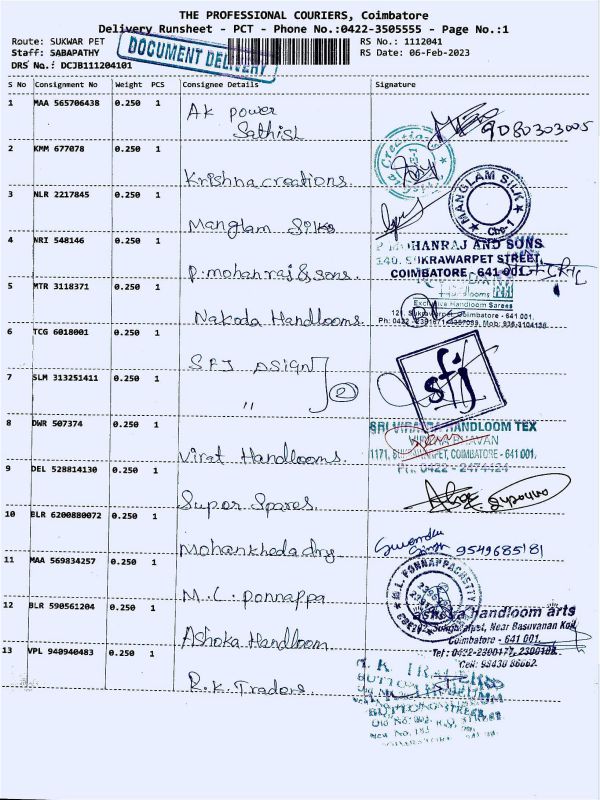 THE PROFESSIONAL COURIERS, Coimbatore
Delivery Runsheet - PCT - Phone No.:0422-3505555 - Page No.:1
Route: SUKWAR PET
RS No.: 1112041
Staff: SABAPATHY
RS Date: 06-Feb-2023
DRS No.: DCJB111204101
DOCUMENT DELIVERY
S No Consignment No Weight PCS Consignee Details Signature
1 MAA 565706438 0.250 1 AK power
Sathish
9080303005
2 KMM 677078 0.250 1 Krishna creations
3 NLR 2217845 0.250 1 Manglam Silks
MANGLAM SILK
Cbe-1
4 NRI 548146 0.250 1 P. mohanraj & sons.
P MOHANRAJ AND SONS
340, SUKRAWARPET STREET,
COIMBATORE 641 001
5 MTR 3118371 0.250 1 Nakoda Handlooms
Exclusive Handloom Sarees
Coimbatore - 641 001.
6 TCG 6018001 0.250 1 SFJ DSIGN
2
sfj
7 SLM 313251411 0.250 1 "
8 DWR 507374 0.250 1 Virat Handlooms
HANDLOOM TEX
COIMBATORE - 641 001.
9 DEL 528814130 0.250 1 Super Spares
10 BLR 6200880072 0.250 1 Mohankheda
9549685181
11 MAA 569834257 0.250 1 M.L. Ponnappa
M.L. PONNAPPACHETTY
12 BLR 590561204 0.250 1 Ashoka Handloom
ashoka handloom arts
Near Basuvanan Koil
Coimbatore - 641 001.
Cell: 98430 86662
13 VPL 940940483 0.250 1 R.K. Traders